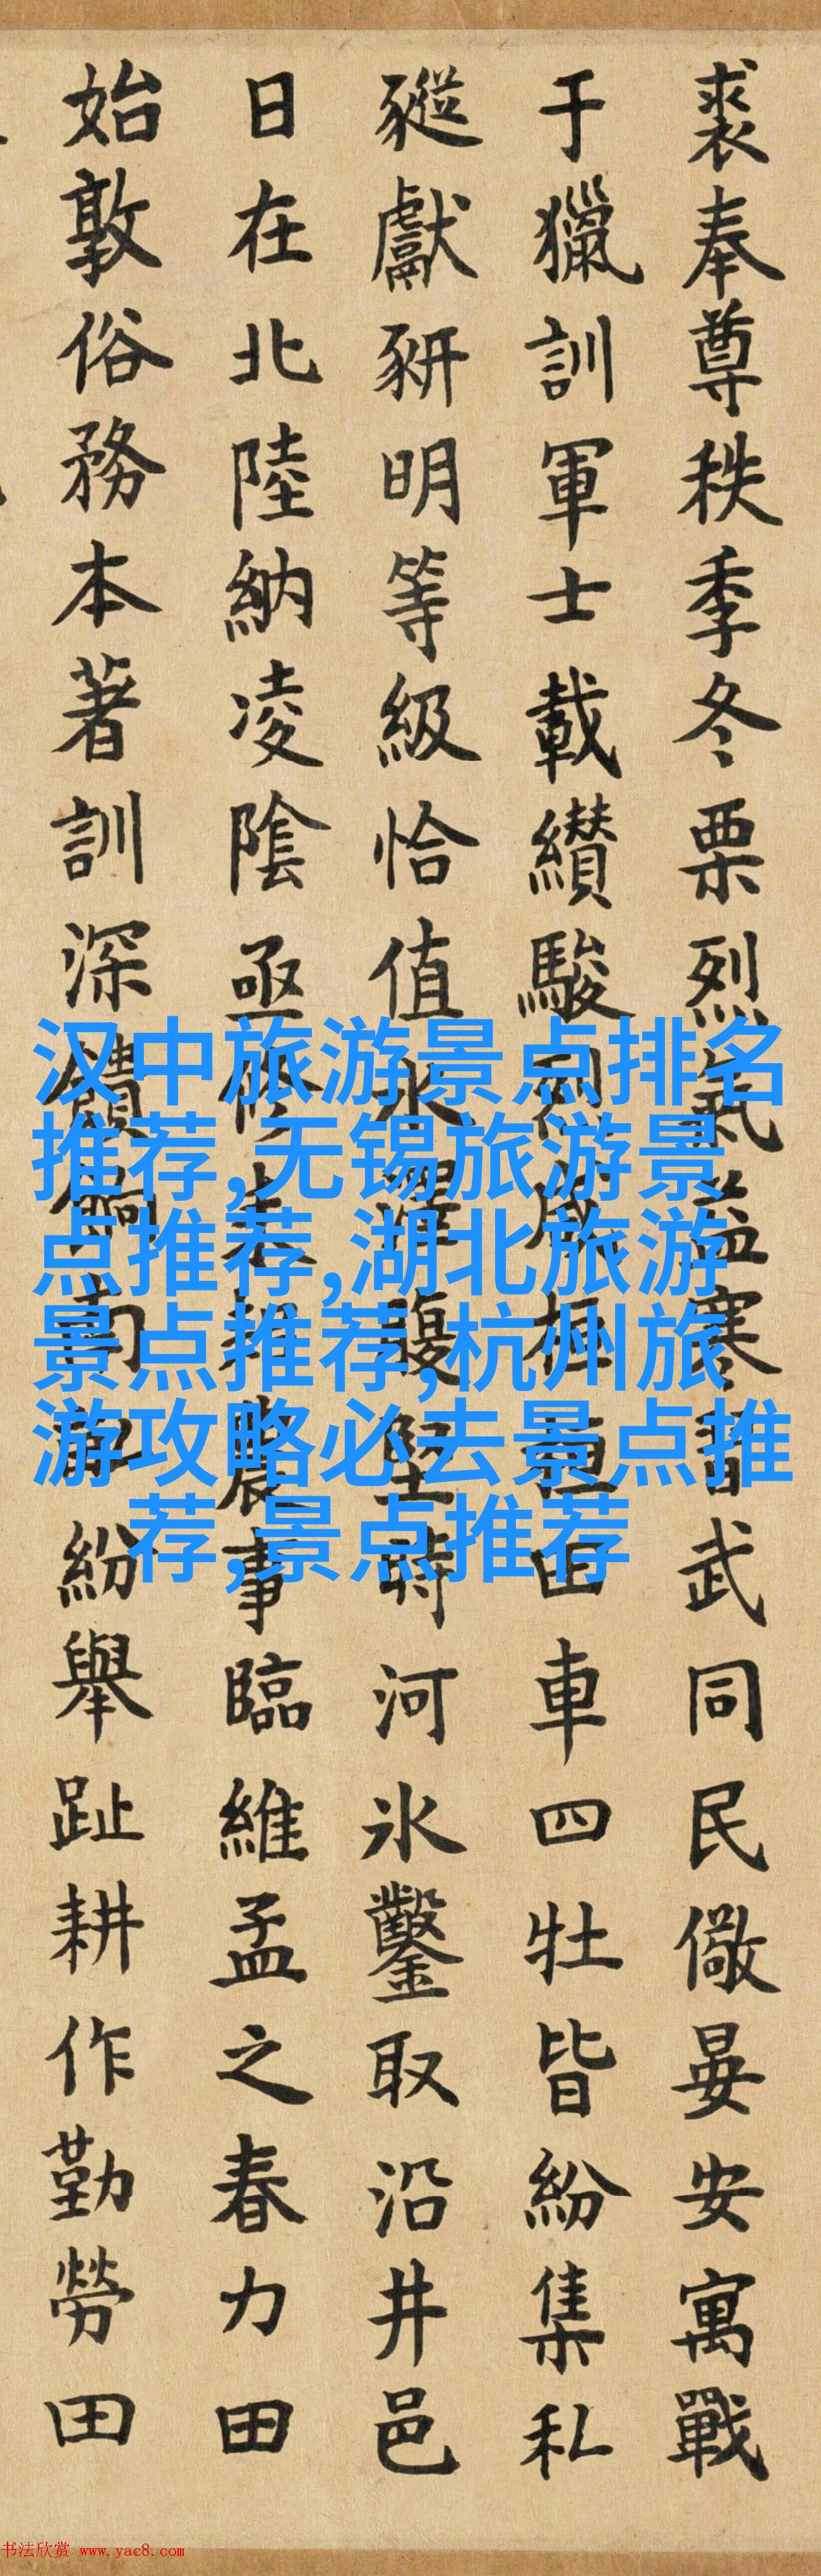 裘奉尊秩季冬栗烈氣益寒習武同民儆晏安寓戰
于獵訓軍士載纘駿田車四牡皆紛集私
豵獻豜明等級恰值水澤腹堅時河氷鑿取沿井邑
日在北陸納凌陰亟修耒耜農事臨維孟之春力田
始敦俗務本著訓深饋餉南畝紛舉趾耕作勤勞田
汉中旅游景点排名
推荐,无锡旅游景
点推荐,湖北旅游
景点推荐,杭州旅
游攻略必去景点推
荐,景点推荐
书法欣赏 www.yac8.com